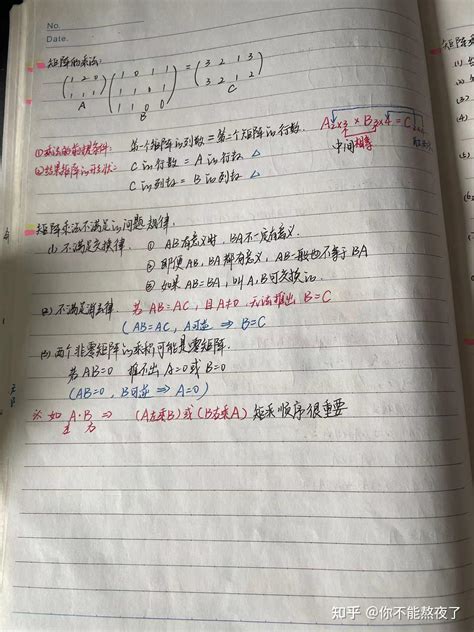 No.
Date.
矩阵的乘法:
(1 2 0
1 1 1) (1 0 1 1
1 1 0 1
1 1 0 0) = (3 2 1 3
3 2 1 2)
A B C
①乘法的前提条件: 第一个矩阵的列数=第二个矩阵的行数. A2×3 × B3×4 = C2×4
②结果矩阵的形状: C的行数=A的行数 △ 中间相等
C的列数=B的列数 △
矩阵乘法不满足的问题规律.
(1) 不满足交换律. ① AB有意义时, BA不一定有意义.
② 即使AB, BA都有意义, AB一般也不等于BA
③ 如果AB=BA, 叫A, B可交换的.
(2) 不满足消去律. 若AB=AC, 且A≠0, 无法推出B=C
(AB=AC, A可逆 ⇒ B=C)
(3) 两个非零矩阵的乘积可能是零矩阵.
若AB=0 推不出A=0或B=0
(AB=0, B可逆 ⇒ A=0)
如 A·B ⇒ (A左乘B)或(B右乘A) 矩乘顺序很重要
左 右
知乎 @你不能熬夜了